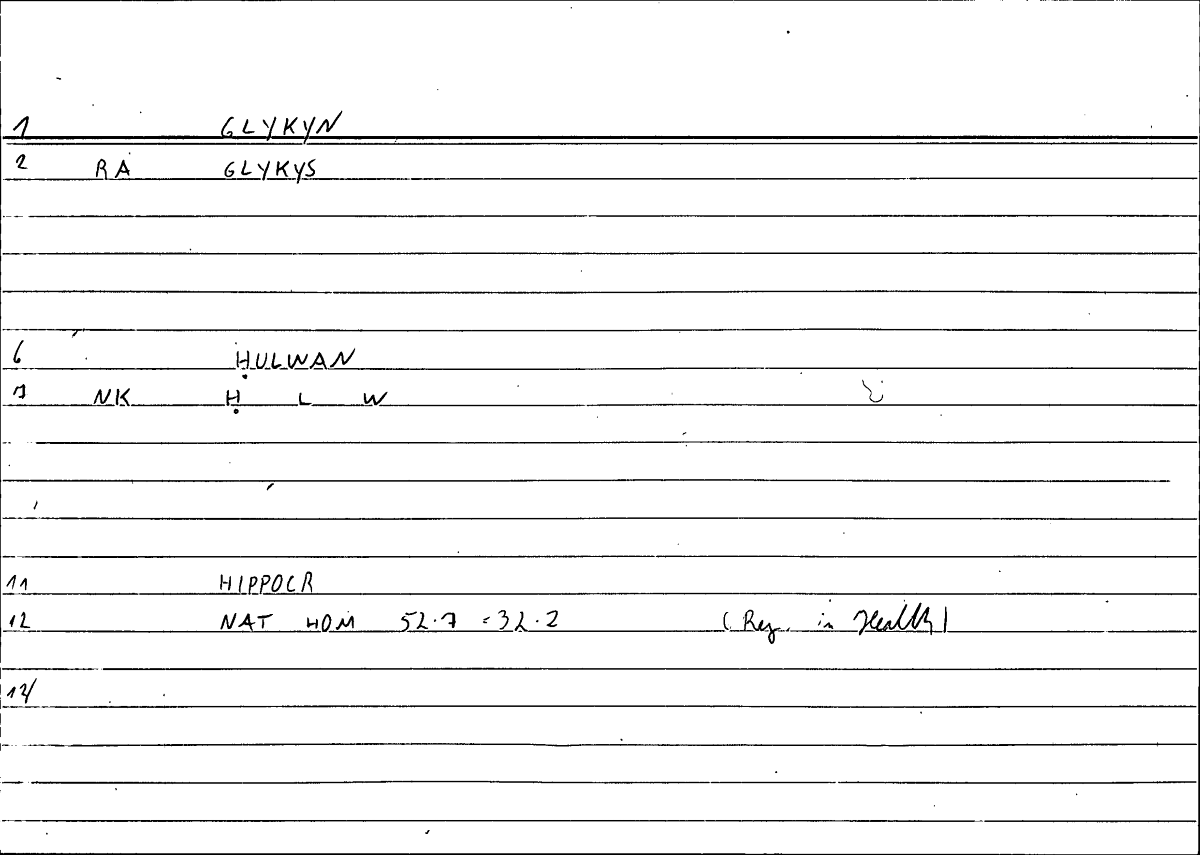 1 GLYKYN
2 RA GLYKYS
6 ḤULWAN
7 NK Ḥ L W
11 HIPPOCR
12 NAT HOM 52.7 = 32.2 (Reg. in Health)
14/